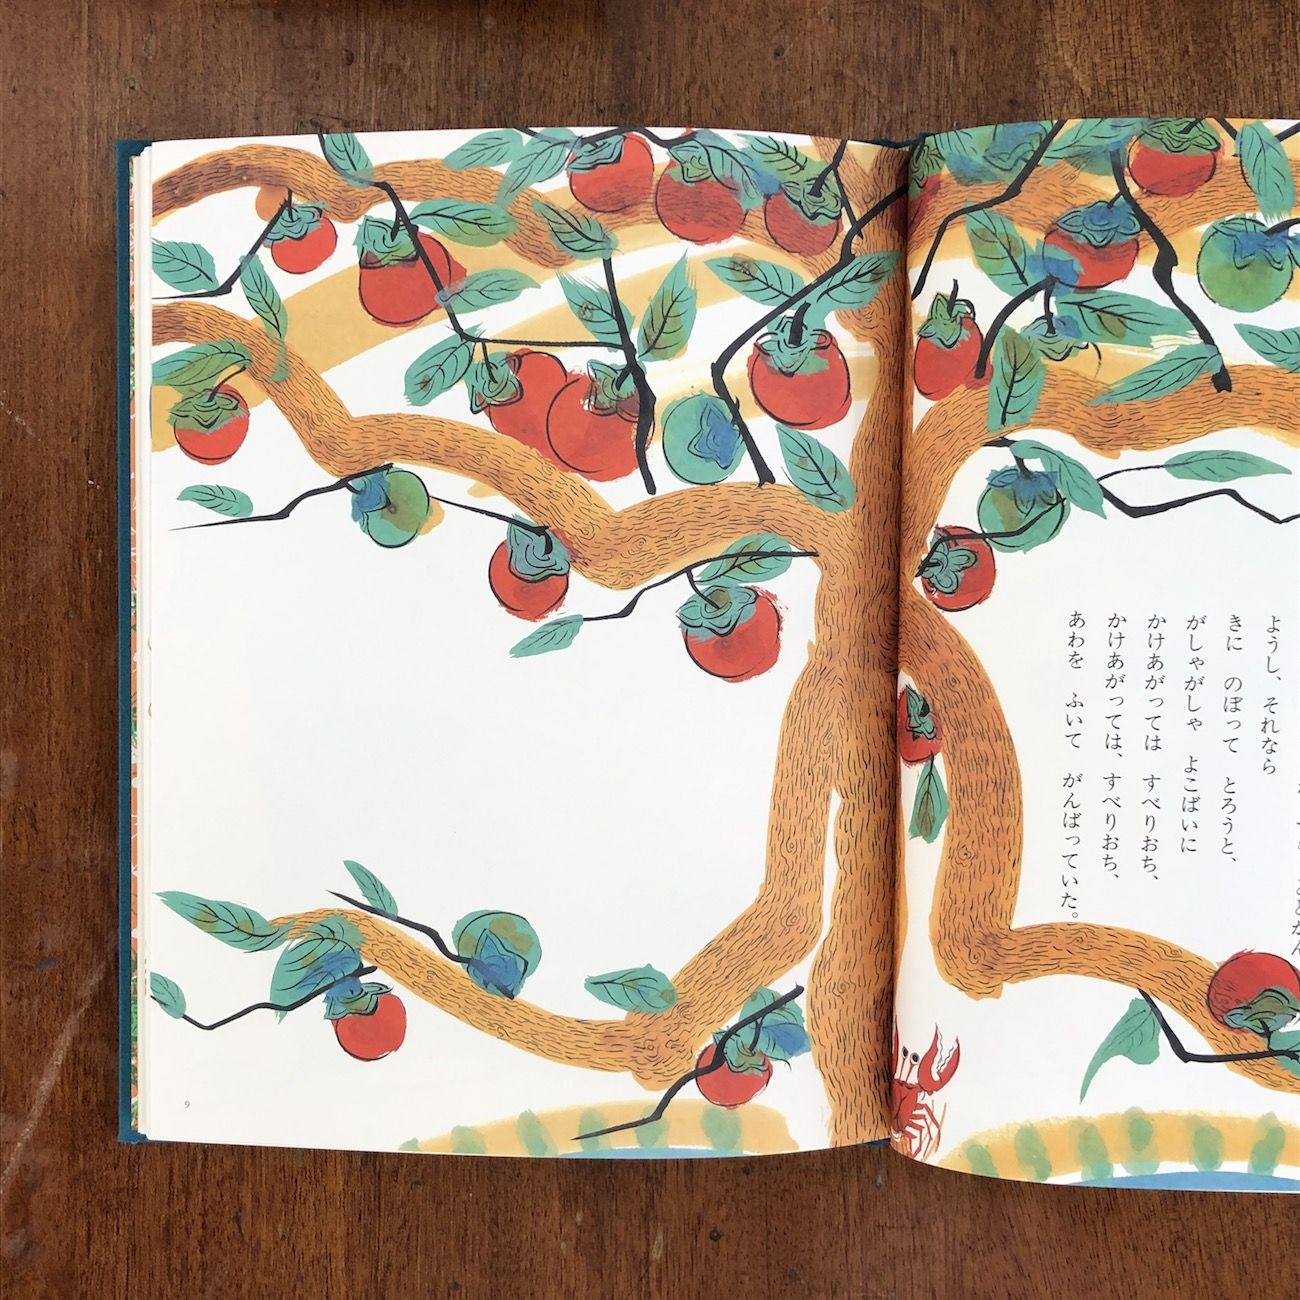 ようし、それなら
きに のぼって とろうと、
がしゃがしゃ よこばいに
かけあがっては すべりおち、
かけあがっては、すべりおち、
あわを ふいて がんばっていた。
9